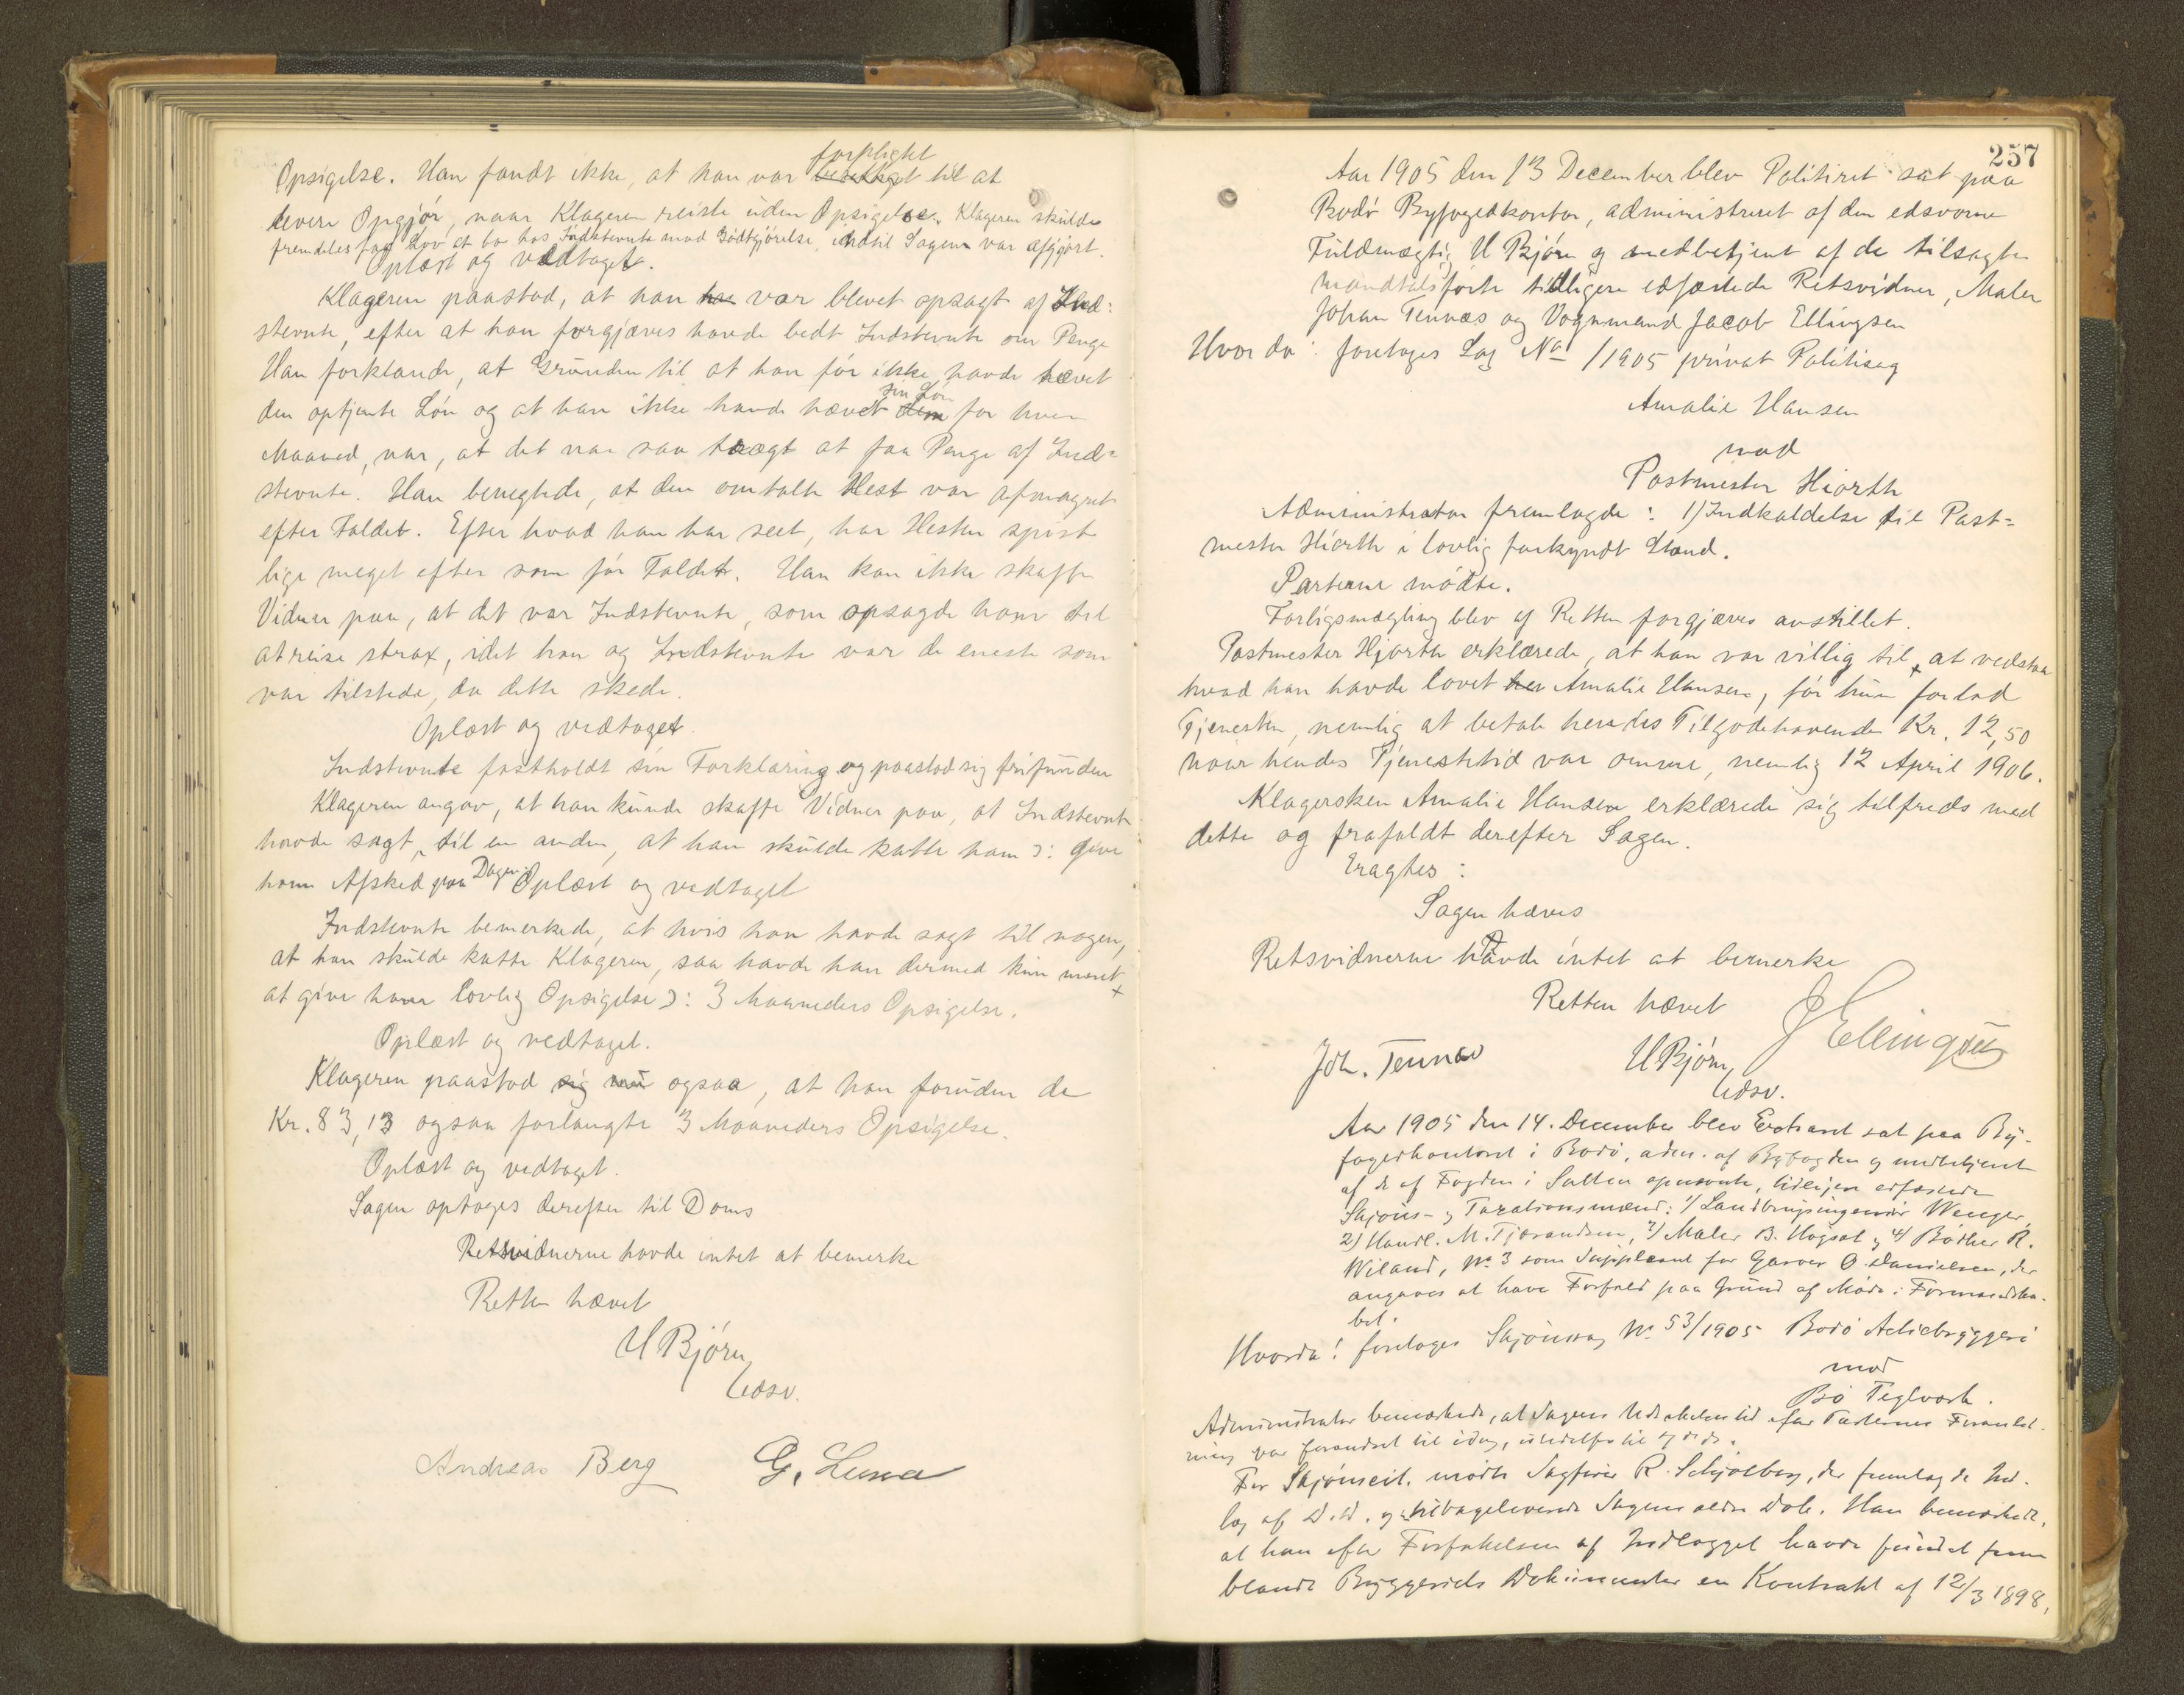 forpligtet
Opsigelse. Han fandt ikke, at han var berettiget til at
levere Opgjør, naar Klageren reiste uden Opsigelse. Klageren skulde
fremdeles faa Lov at bo hos Indstevnte mod Godtgjørelse, indtil Sagen var afgjort.
Oplæst og vedtaget.
Klageren paastod, at han har var blevet opsagt af Ind-
stevnte, efter at han forgjæves havde bedt Indstevnte om Penge
Han forklarede, at Grunden til at han før ikke havde hævet
sin Løn
den optjente Løn og at han ikke havde hævet den for hver
Maaned, var, at det var saa trægt at faa Penge af Ind-
stevnte. Han benegtede, at den omtalte Hest var afmagret
efter Faldet. Efter hvad han har seet, har Hesten spist
lige meget efter som før Faldet. Han kan ikke skaffe
Vidner paa, at det var Indstevnte, som opsagde ham til
at reise strax, idet han og Indstevnte var de eneste som
var tilstede, da dette skede.
Oplæst og vedtaget
Indstevnte fastholdt sin Forklaring og paastod sig frifunden
Klageren angav, at han kunde skaffe Vidner paa, at Indstevnte
havde sagt til en anden, at han skulde katte ham ɔ: give
ham Afsked paa Dagen. Oplæst og vedtaget
Indstevnte bemerkede, at hvis han havde sagt til nogen,
at han skulde katte Klageren, saa havde han dermed kun ment
at give ham lovlig Opsigelse ɔ: 3 Maaneders Opsigelse.
Oplæst og vedtaget.
Klageren paastod sig nu ogsaa, at han foruden de
Kr. 83,13 ogsaa forlangte 3 Maaneders Opsigelse.
Oplæst og vedtaget.
Sagen optages derefter til Doms
Retsvidnerne havde intet at bemerke
Retten hævet
U Bjørn
Edsv.
Andreas Berg G. Lund
257
Aar 1905 den 13 December blev Politiret sat paa
Bodø Byfogedkontor, administreret af den edsvorne
Fuldmægtig U Bjørn og medbetjent af de tilsagte
mandtalsførte tidligere edfæstede Retsvidner, Maler
Johan Tennæs og Vognmand Jacob Ellingsen
Hvorda: foretoges Sag No 1/1905 privat Politisag
Amalie Hansen
mod
Postmester Hiorth
Administrator fremlagde: 1) Indkaldelse til Post-
mester Hiorth i lovlig forkyndt Stand.
Parterne mødte.
Forligsmægling blev af Retten forgjæves anstillet.
Postmester Hjorth erklærede, at han var villig til at vedstaa
hvad han havde lovet her Amalie Hansen, før hun forlod
Tjenesten, nemlig at betale hendes Tilgodehavende Kr. 12,50
naar hendes Tjenestetid var omme, nemlig 12 April 1906.
Klagersken Amalie Hansen erklærede sig tilfreds med
dette og frafaldt derefter Sagen.
Eragtes:
Sagen hæves
Retsvidnerne havde intet at bemerke
Retten hævet
J Ellingsen
Joh. Tennæs U Bjørn
Edsv.
Aar 1905 den 14. December blev Extraret sat paa By-
fogedkontoret i Bodø, adm. af Byfogden og medbetjent
af de af Fogden i Salten opnævnte, tidligere edfæstede
Skjøns- og Taxationsmænd: 1) Landbrugsingeniør Wenger,
2) Handl. M. Tjærandsen, 3) Maler B. Høgsæt og 4) Bødker R.
Wiland, No 3 som Suppleant for Garver O. Danielsen, der
angaves at have Forfald paa Grund af Møde i Formandska-
bet.
Hvorda: foretoges Skjønssag No 53/1905 Bodø Actiebryggeri
mod
Bø Teglværk.
Administrator bemærkede, at Sagens Udsættelsestid efter Parternes Foranled-
ning var forandret til idag,
For Skjønscit. mødte Sagfører R. Schjølberg, der fremlagde Ind-
læg af D.D. og tilbageleverede Sagens ældre Dok. Han bemærkede,
at han efter Forfattelsen af Indlægget havde fundet frem
blandt Bryggeriets Dokumenter en Kontrakt af 12/3 1898,